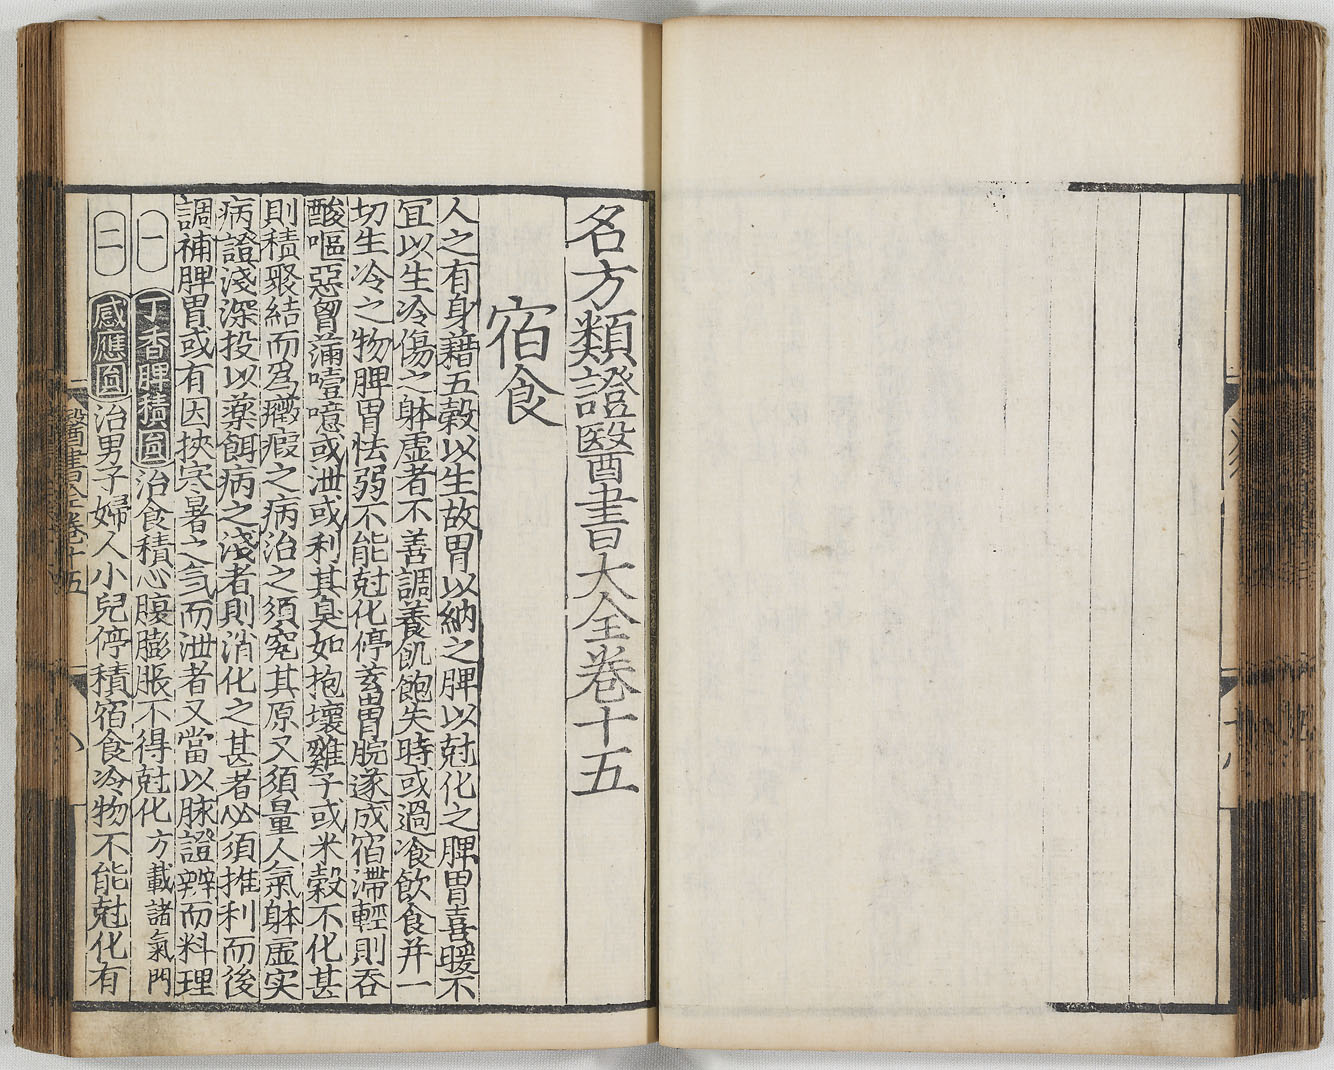 名方類證醫書大全卷十五
宿食
人之有身藉五穀以生故胃以納之脾以尅化之脾胃喜暖不
冝以生冷傷之躰虛者不善調養飢飽失時或過飡飲食并一
切生冷之物脾胃怯弱不能尅化停玄胃脘遂成宿滯輕則吞
酸嘔惡胷滿噎噫或泄或利其臭如抱壞雞子或米穀不化甚
則積聚結而爲癥瘕之病治之須究其原又須量人氣躰虛实
病證淺深投以藥餌病之淺者則消化之甚者必須推利而後
調補脾胃或有因挾寒暑之氣而泄者又當以脉證辨而料理
一 丁香脾積圎 治食積心腹膨脹不得尅化 方載諸氣門
二 感應圎 治男子婦人小兒停積宿食冷物不能尅化有
醫書全卷十五